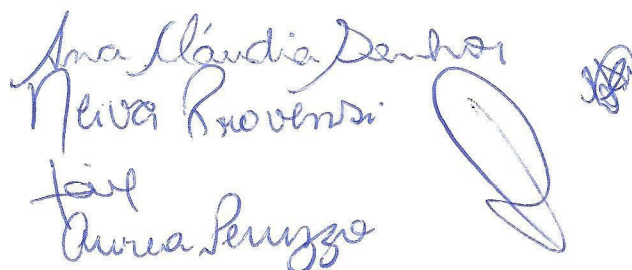 Ana Cláudia Senhor
Neiva Provensi
Aurea Peruzzo